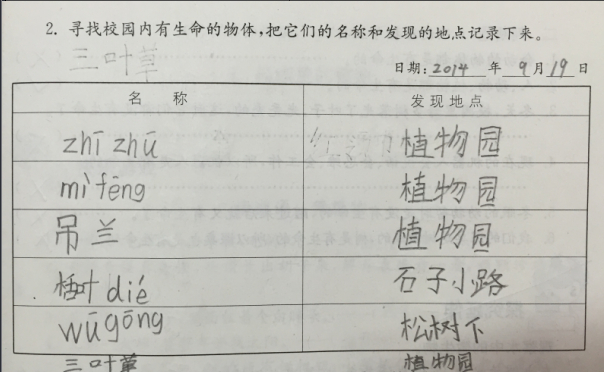 2. 寻找校园内有生命的物体,把它们的名称和发现的地点记录下来。
三叶草
日期:2014 年 9月19日
名 称 发现地点
zhī zhū 植物园
mì fēng 植物园
吊兰 植物园
dié 石子小路
wū gōng 松树下
三叶草 植物园